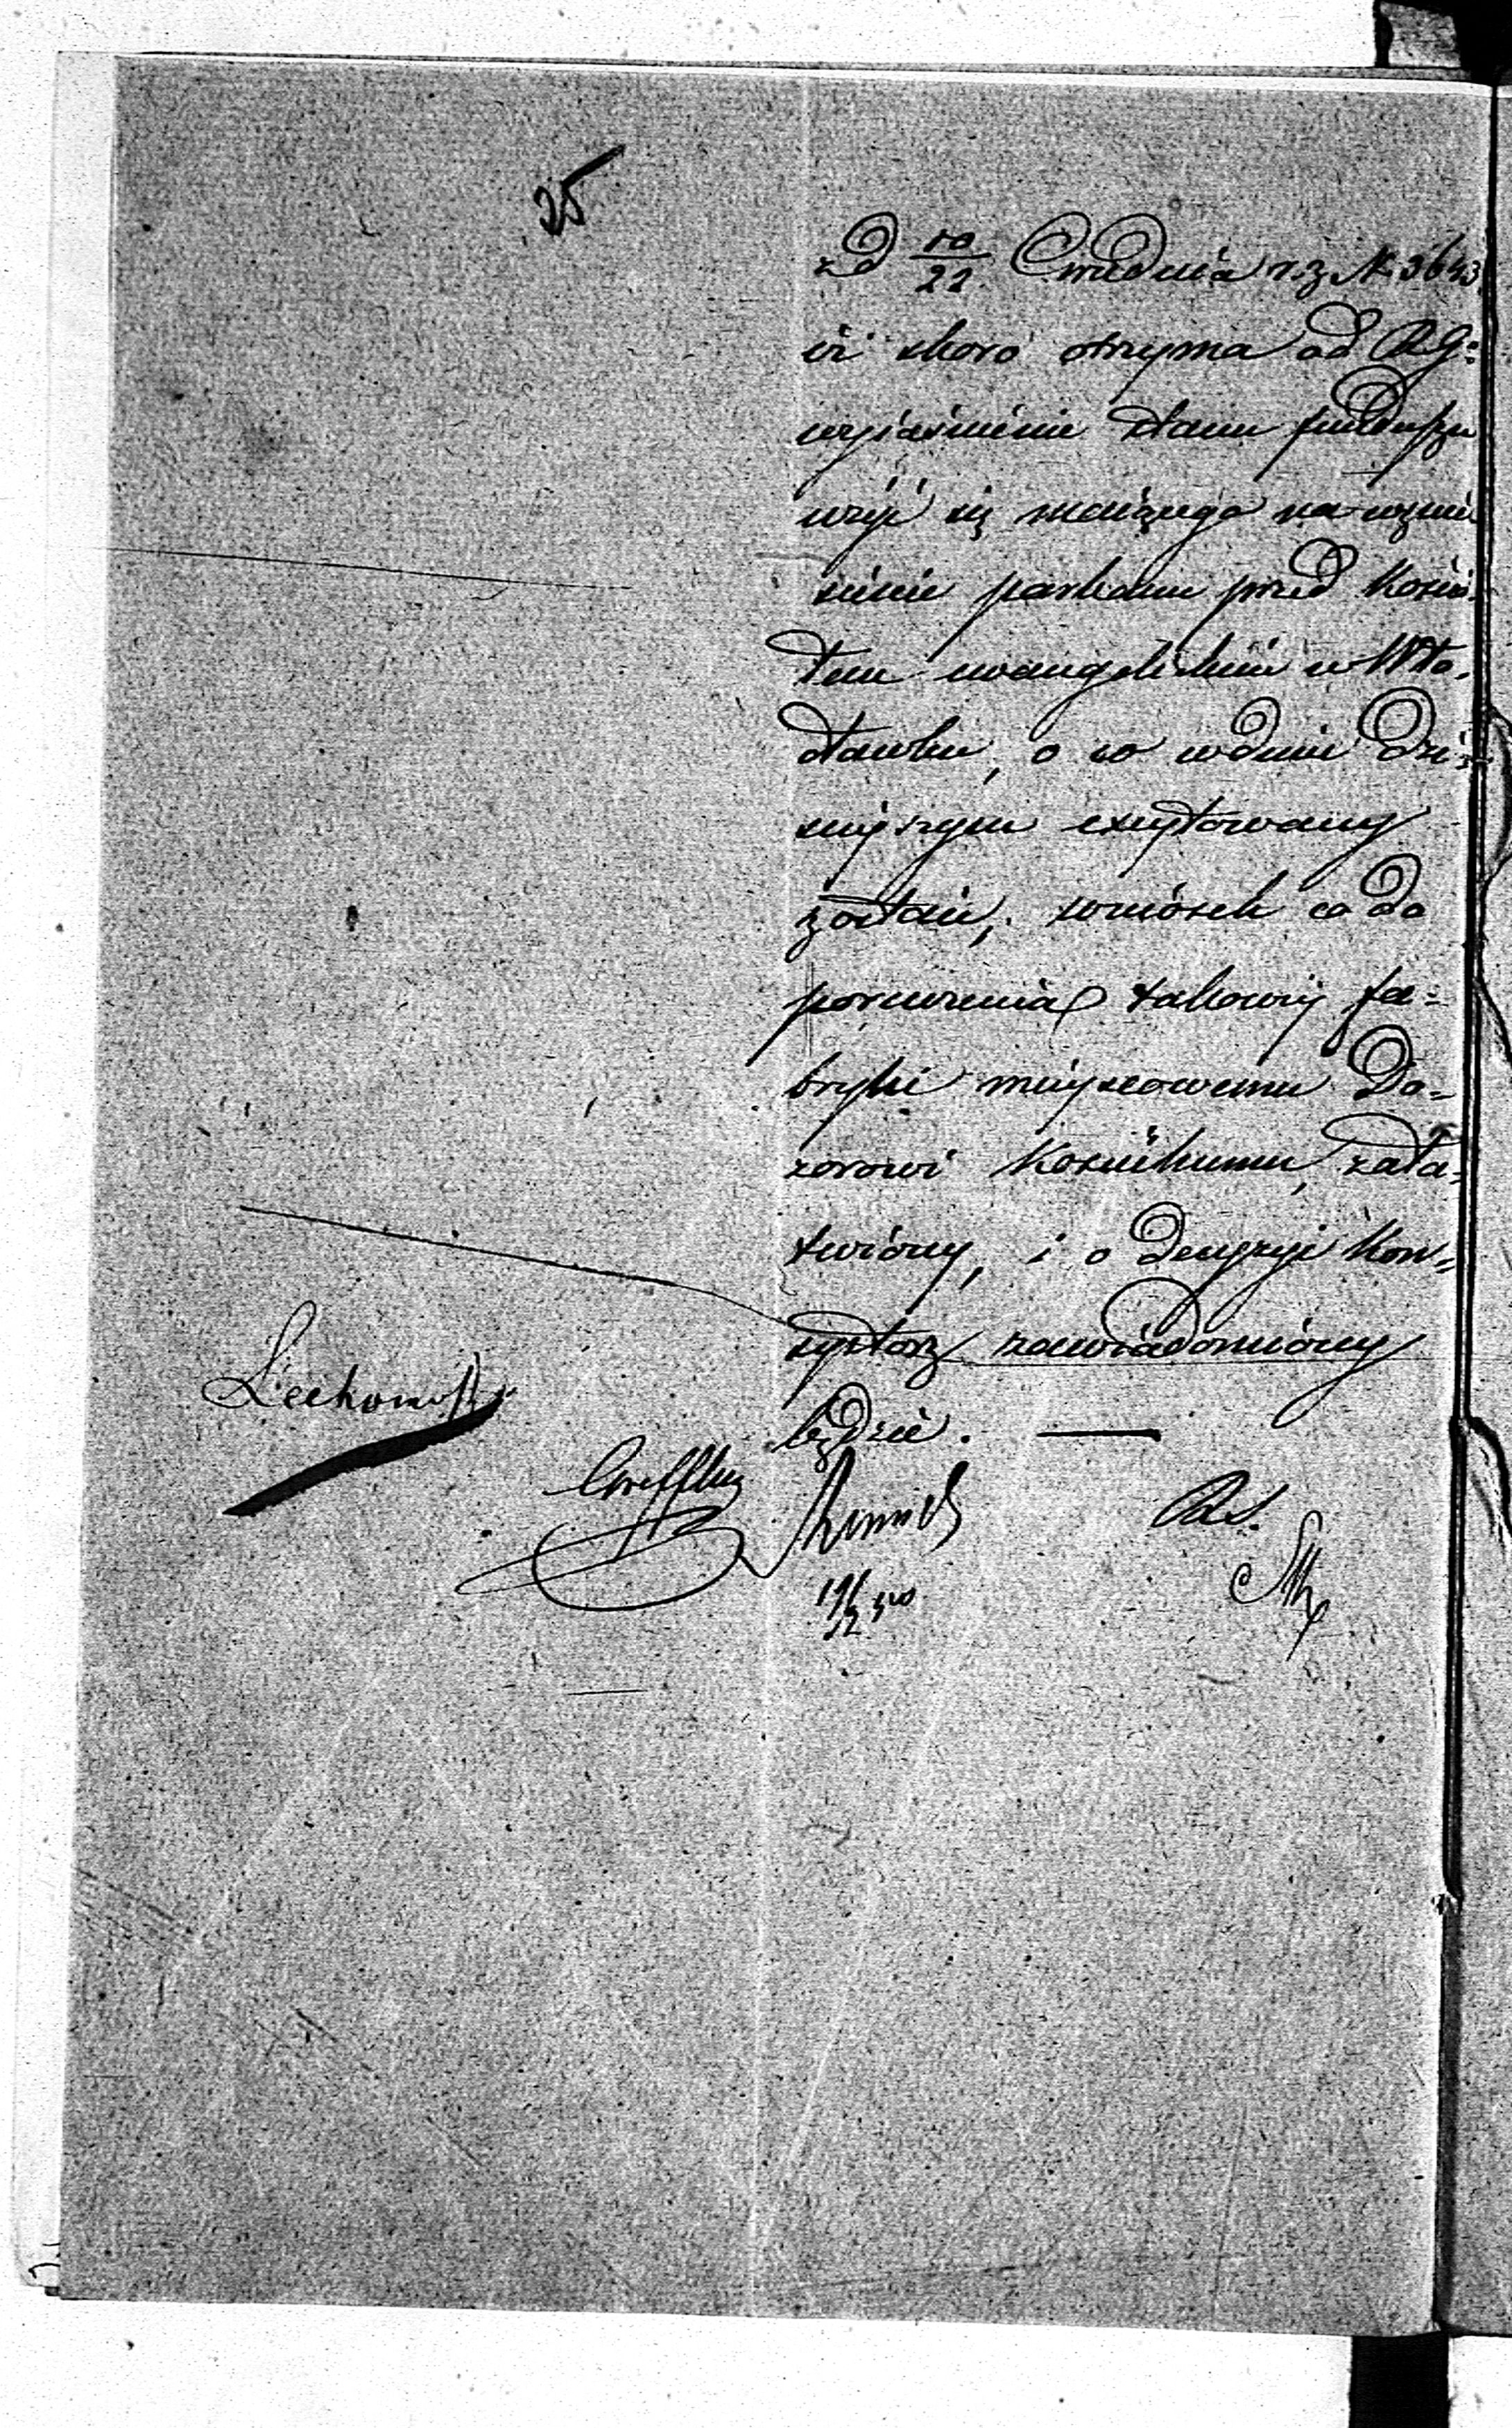 25
zd 10/22 Grudnia r.z N. 3643
iż skoro otrzyma od RG:
wyjaśnienie stanu funduszu
użyć się maiącego na wznie
sienie parkanu przed Kościo
łem ewangelickim w Wło-
cławku, o co w dniu dzi-
sieyszym excytowany
został, wniosek co do
poruczenia takowéy fa-
bryki mieyscowemu Do-
zorowi Kościelnemu, zała-
twiony, i o decyzyi Kon-
systorz zawiadomiony
będzie. —
RS.